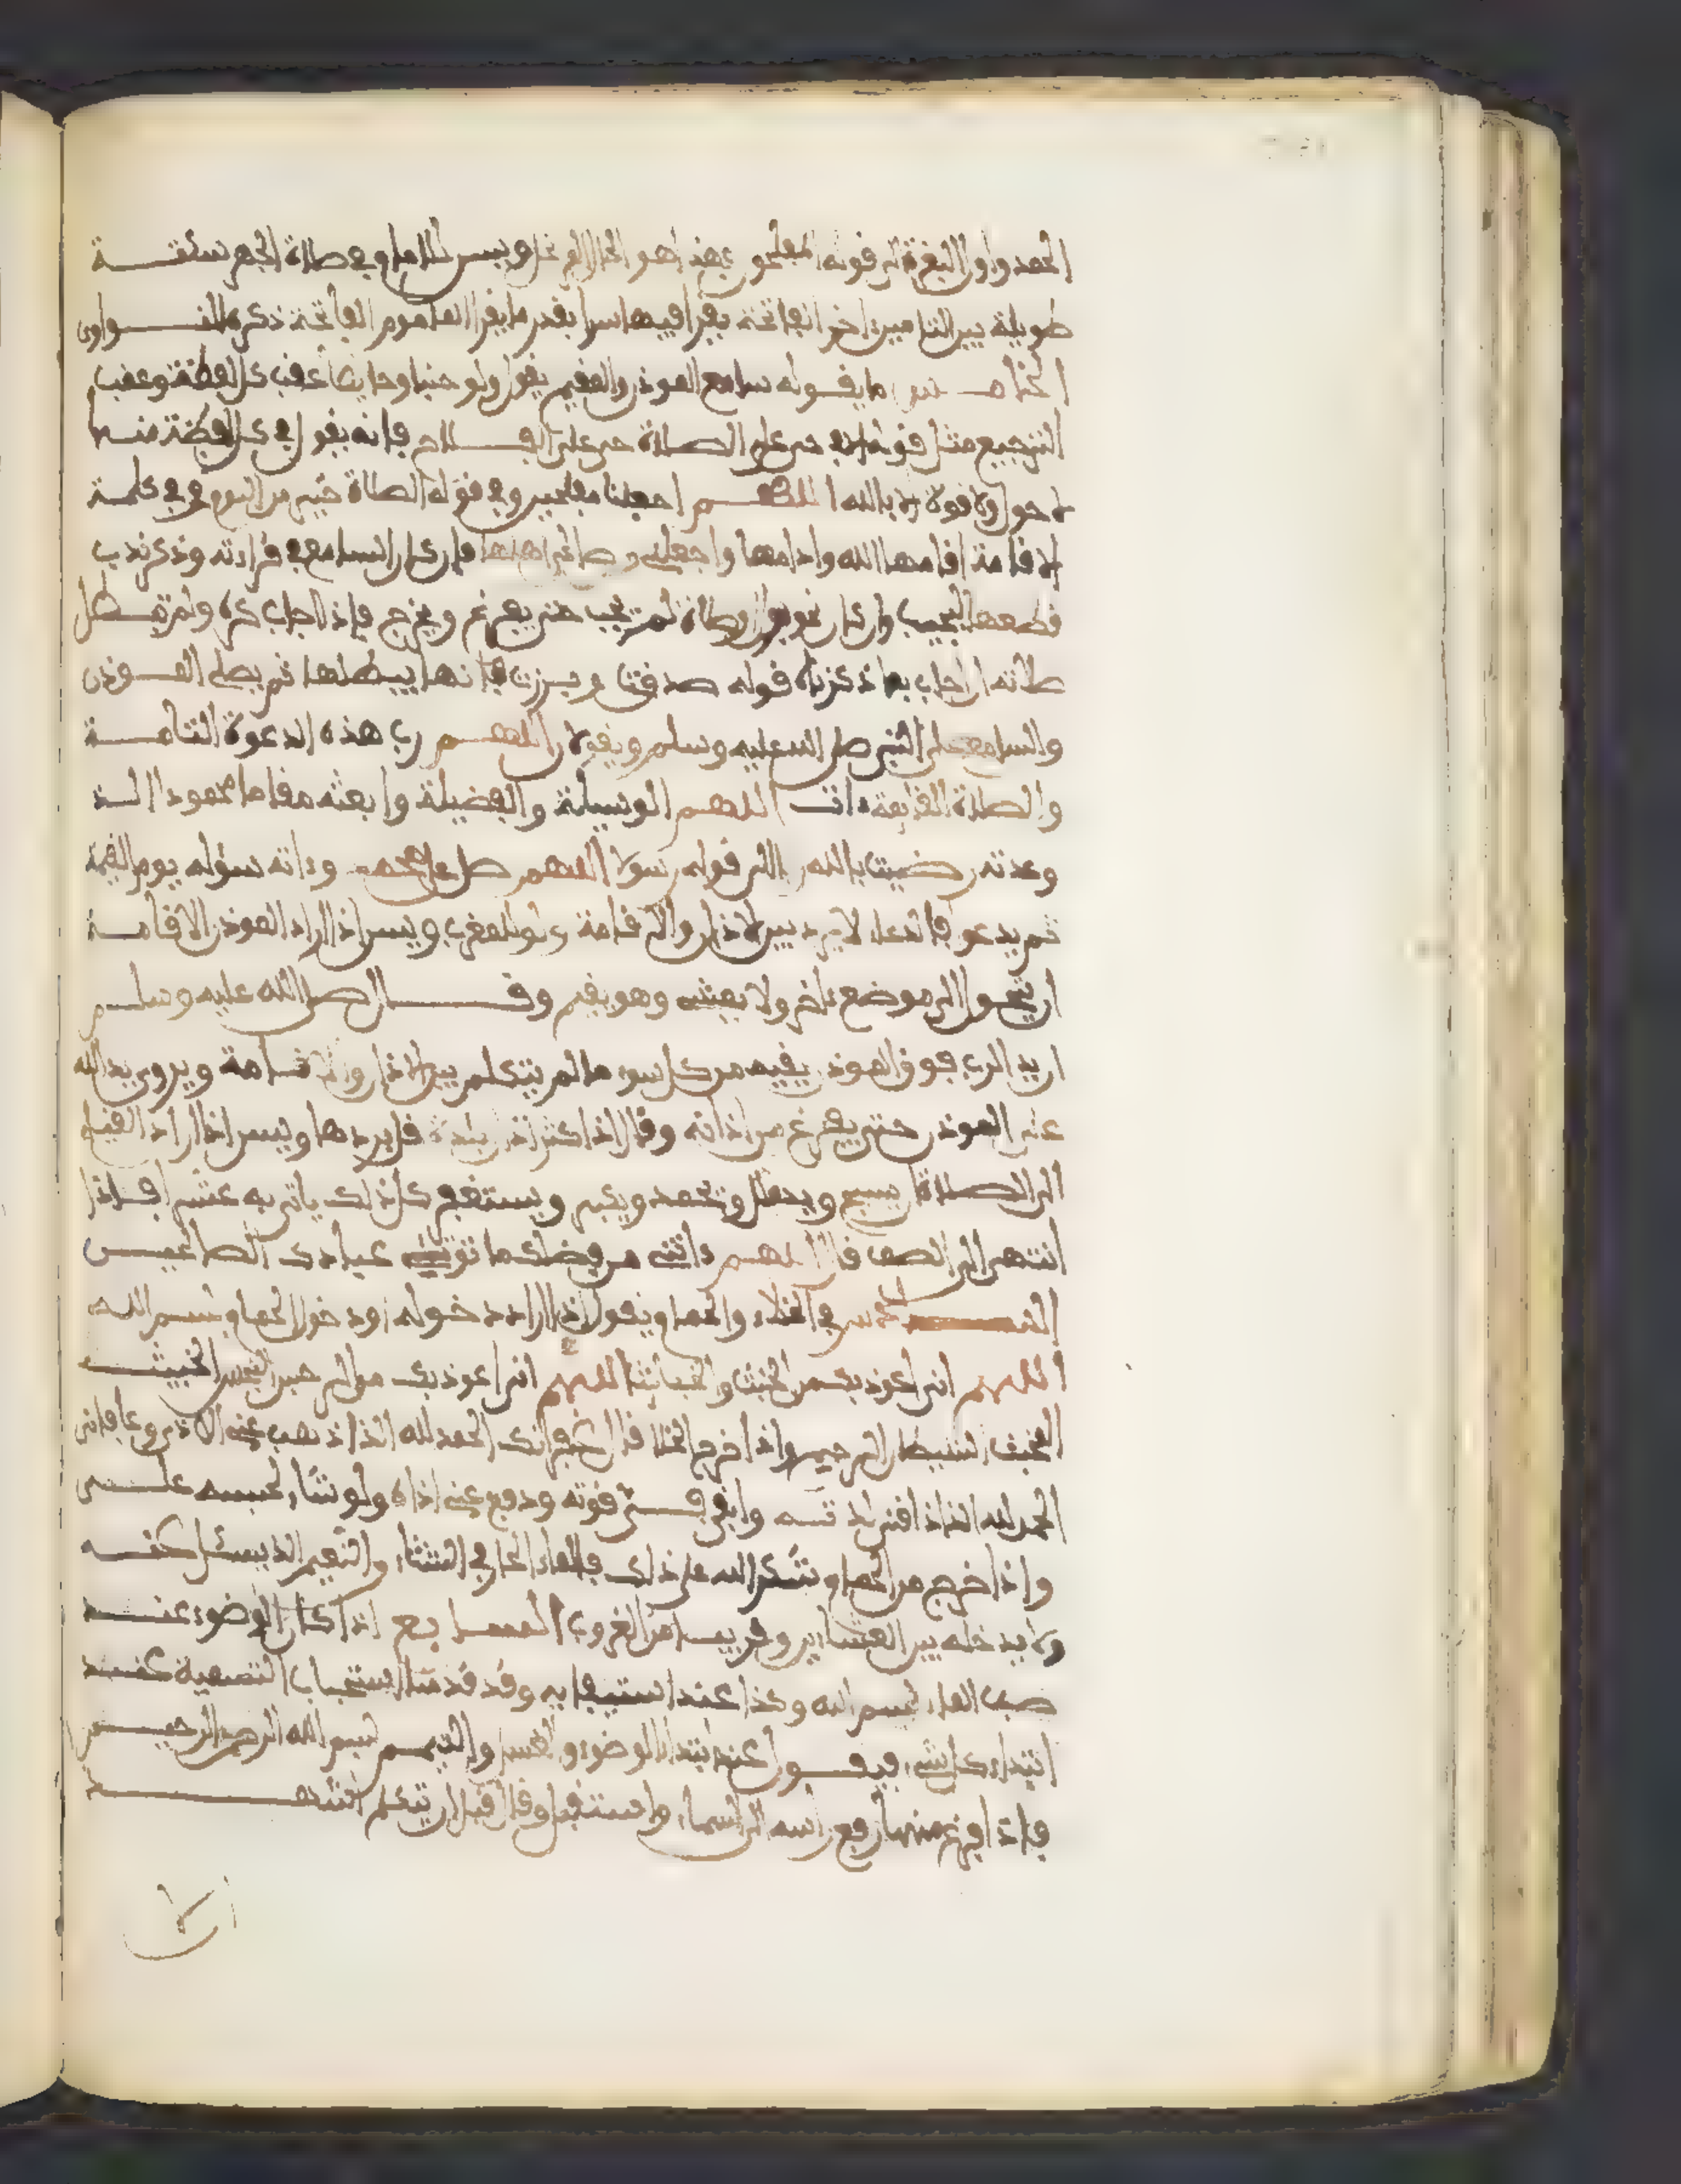 الحمد واول البقرة الى قوله المفلحون فهذا هو الحال ويسن للامام في صلاة الجهر سكتة
طويلة بين التامين اخر الفاتحة يقرا فيها سرا بقدر ما يقرا الماموم الفاتحة ذكره النواوى
الخامس ما يقوله سامع الموذن والمقيم يقول ولو جنبا وحايضا عقب كل لفظة وعقب
الترجيع مثل قوله الا في حى على الصلاة حى على الفلاح فانه يقول في كل لفظة منها
لا حول ولا قوة الا بالله اللهم اجعلنا مفلحين وفي قوله الصلاة خير من النوم وفي كلمة
الاقامة اقامها الله وادامها واجعلنى من صالحى اهلها فان كان السامع في قراءته وذكر ندب
قطعها ليجيب وان كان في صلاة لم يجب حتى يفرغ ويخرج فاذا اجاب كره ولم تبطل
صلاته ان اجاب بما ذكرناه قوله صدقت وبررت فانها يبطلها ثم يصلى الموذن
والسامع على النبى صلى الله عليه وسلم ويقولان اللهم رب هذه الدعوة التامة
والصلاة القايمة ءات اللهم الوسيلة والفضيلة وابعثه مقاما محمودا الذ
وعدته رضيت بالله الى قوله رسولا اللهم صل على محمد وءاته سؤله يوم القيمة
ثم يدعو فالدعاء لا يرد بين الاذان والاقامة ولو للمغرب ويسن اذا اراد الموذن الاقامة
ان يتحول الى موضع ءاخر ولا يمشى وهو يقيم وقال صلى الله عليه وسلم
ان يد الرب فوق الموذن يقيه من كل سوء ما لم يتكلم بين الاذان والاقامة ويروى يد الله
على الموذن حتى يفرغ من اذانه وقال اذا كثر اذان بلدة قل بردها ويسن اذا اراد القيام
الى الصلاة ان يسبح ويهلل ويحمد ويكبر ويستغفر كل ذلك ياتى به عشرا فاذا
انتهى الى الصف قال اللهم ءاتنى من فضلك ما تؤتى عبادك الصالحين
السادس في الخلاء والحمام ويقول اذا اراد دخوله او دخول الحمام بسم الله
اللهم انى اعوذ بك من الخبث والخبائث اللهم انى اعوذ بك من الرجس النجس الخبيث
المخبث الشيطان الرجيم واذا خرج الخلا قال غفرانك الحمد لله الذ اذهب عنى الاذى وعافانى
الحمد لله الذ اذاقنى لذته وابقى في قوته ودفع عنى اذاه ولو شاء لحبسه على
واذا خرج من الحمام شكر الله على ذلك فالماء الحار في الشتاء والنعيم الذ يسئل عنه
ولا يدخله بين العشاءين وقريبا من الغروب السابع اذا كان الوضوء عند
صب الماء بسم الله وكذا عند استيفايه وقد قدمنا استحباب التسمية عند
ابتداء كل شى فيقول عند ابتداء الوضوء والغسل والتيمم بسم الله الرحمن الرحيم
فاذا فرغ منها رفع راسه الى السماء واستقبل وقال قبل ان يتكلم اشهد
ان لا